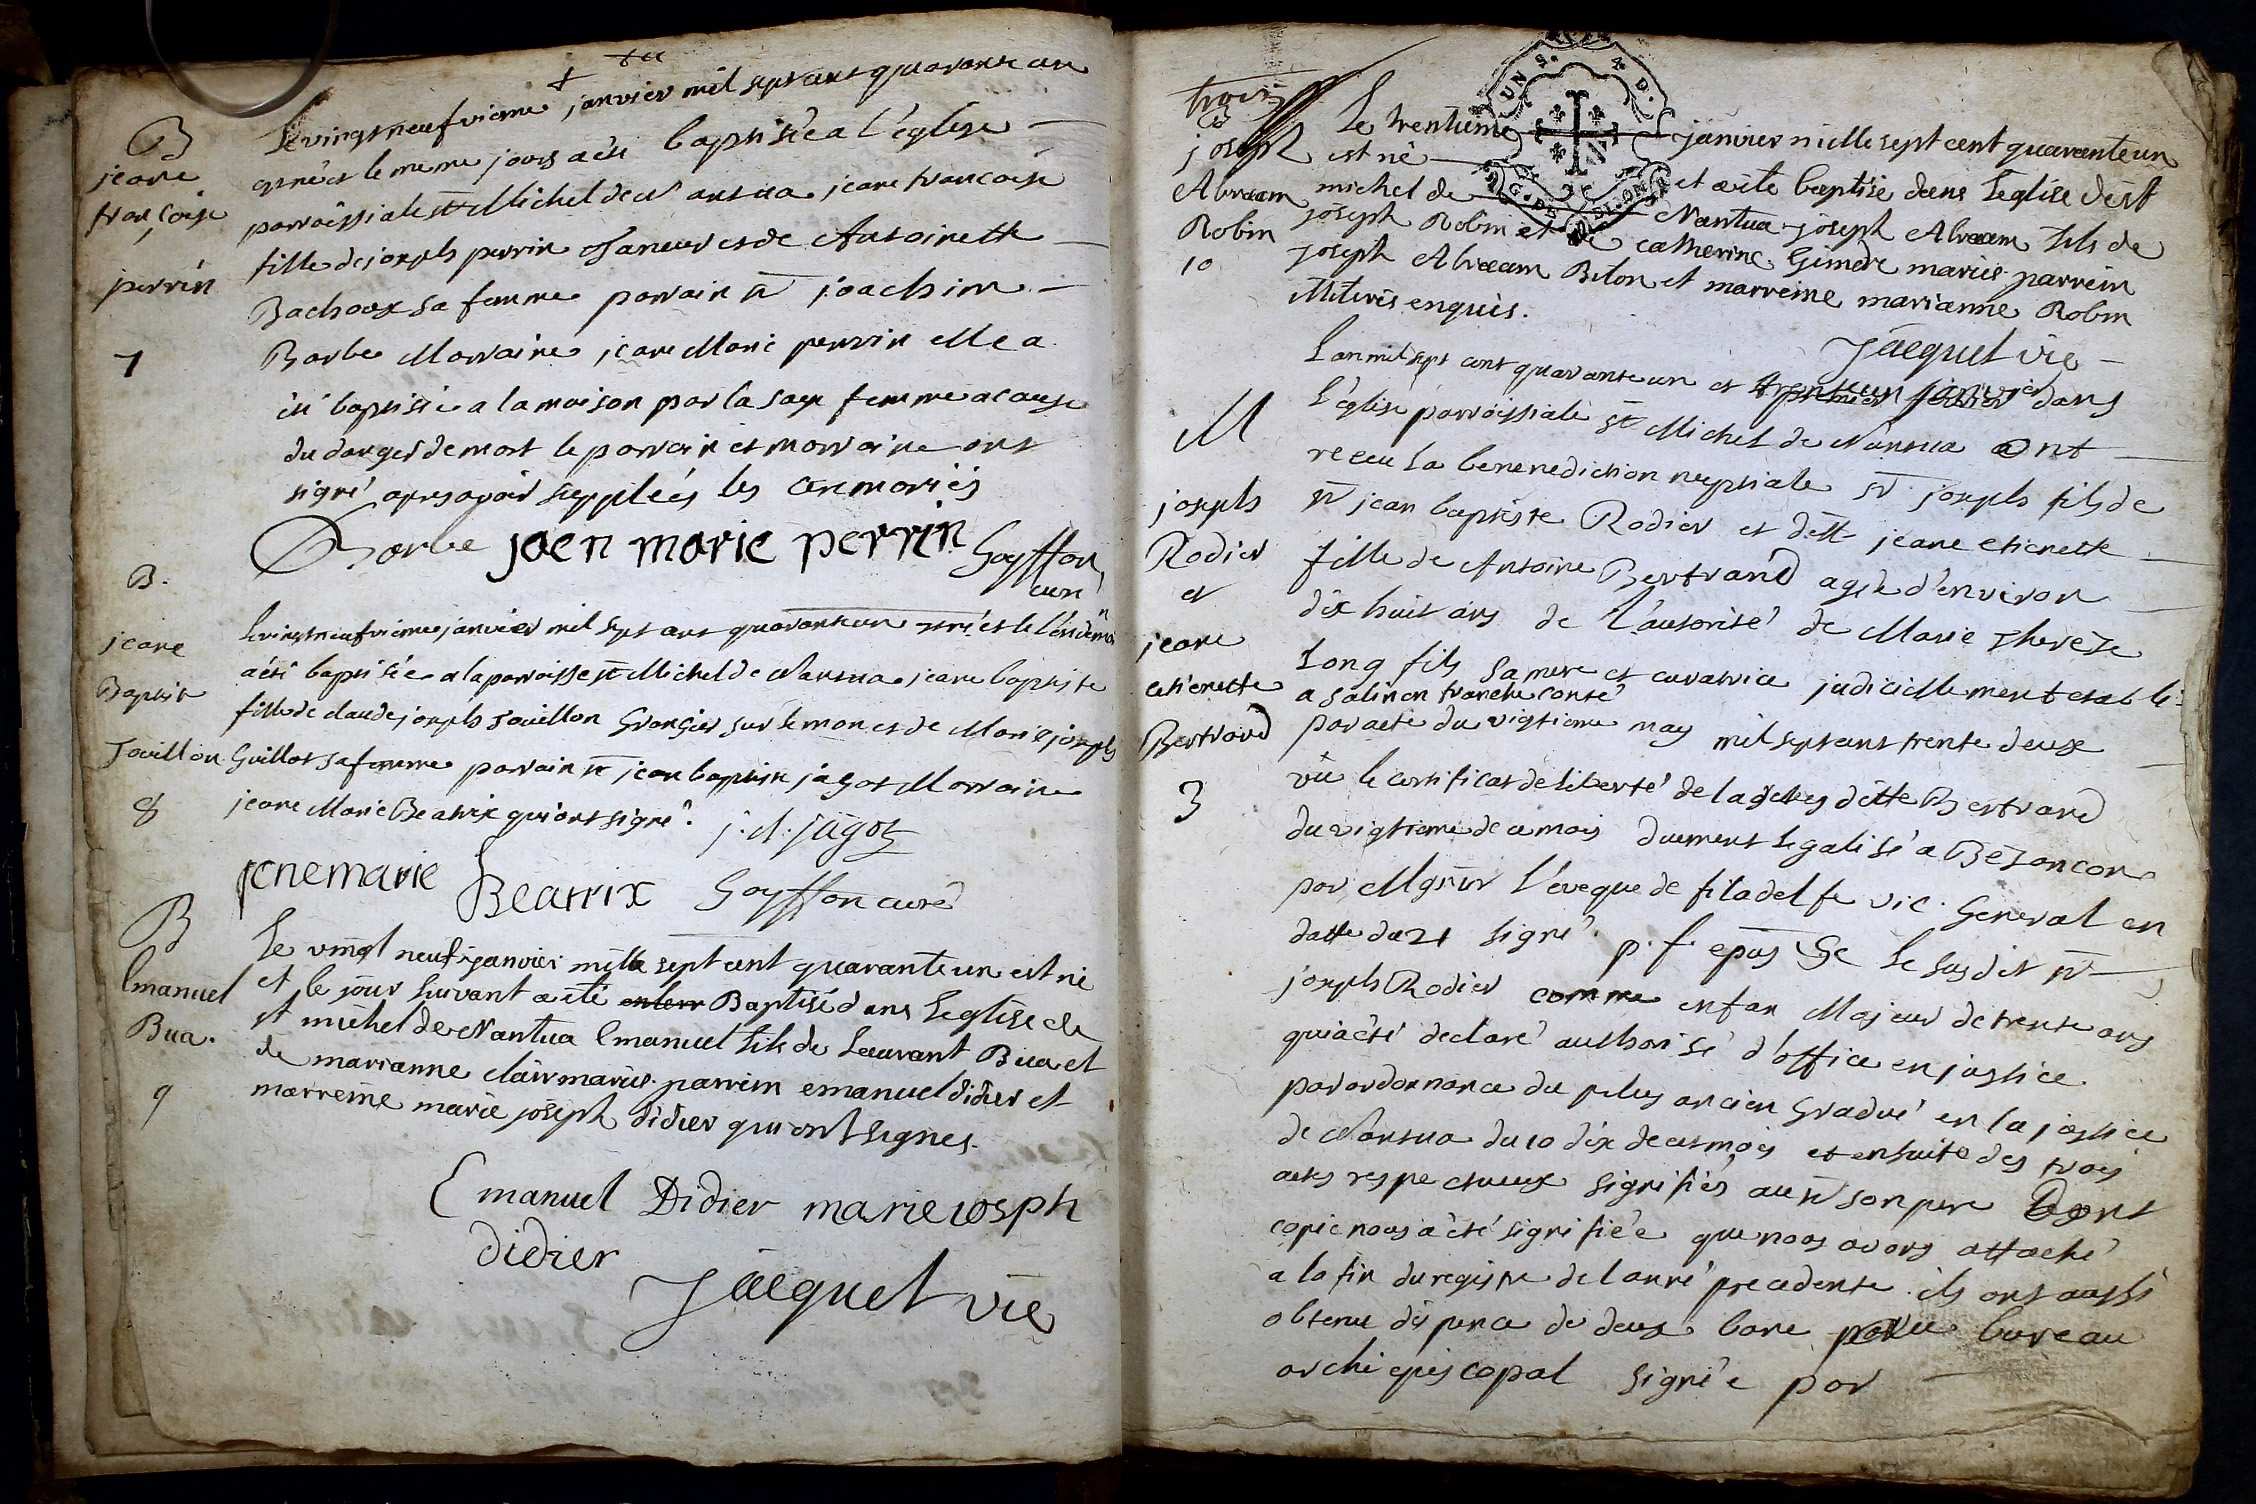 B
jeane
francoise
perrin
7
Le vingt neufvieme janvier mil sept cent quarante un
est née et le meme jours a été baptisée a l'église
parroissiale st Michel de Nantua jeane francoise
fille de joseph perrin Taneur et de Antoinette
Bachoux sa femme parrain sr joachim
Barbe Marraine jeane Marie perrin elle a
été baptisée a la maison par la sage femme a cause
du danger de mort le parrain et marraine ont
signé apres avoir suppleés les ceremoniës
Barbe jaen marie perrin Goyffon
curé
B.
jeane
Baptiste
Jouillon
8
Le vingt neufvieme janvier mil sept cent quarante un est née et le l'endemain
a été baptisée a la parroisse st Michel de Nantua jeane baptiste
fille de claude joseph Jouillon Grangier sur le mon et de Marie joseph
Guillot sa femme parrain sr jean baptiste jagot Marraine
jeane Marie Beatrix qui ont signé. j. d. jagot
jenemarie Beatrix Goyffon curé
B
Emanuel
Bua.
9
Le vingt neuf janvier mille sept cent quarante un est né
et le jour suivant a été Baptisé dans L'eglise de
st michel de Nantua Emanuel fils de Laurant Bua et
de marianne clair mariés. parrein emanuel didier et
marreine marie joseph didier qui ont signes.
Emanuel Didier marie iosph
didier
Jacquet vic
trois
B
joseph
Abraam
Robin
10
Le trentieme janvier mille sept cent quarante un
est né et a été baptisé dans L'eglise de st
michel de Nantua joseph Abraam fils de
joseph Robin et de catherine Gindre mariés. parrein
joseph Abraam Biton et marreine marianne Robin
illiterés enquis.
Jacquet vic
M
joseph
Rodier
et
jeane
etienette
Bertrand
3
L'an mil sept cent quarante un et dans
L'église parroissiale st Michel de Nantua ont
receu la benenediction nuptiale sr joseph fils de
sr jean baptiste Rodier et dlle jeane etienette
fille de Antoine Bertrand agée d'environ
dix huit ans de L'autorité de Marie Thereze
Long fils sa mere et curatrice judiciellement etabli
a salin en franche conté
par acte du vigtieme may mil sept cent trente deux
vu le certificat de liberté de la ditte Bertrand
du vigtieme de ce mois duement legalisé a Bezancon
par Mgneur L'eveque de filadelfe vic. General en
datte du 21 signé. p. f. epus &c Le susdit sr
joseph Rodier comme enfan Majeur de trente ans
qui a été declaré authorisé d'office en justice
par ordonnance du plus ancien Gradué en la justice
de Nantua du 10 dix de ces mois et ensuite des trois
actes respectueux signifiés au sr son pere Dont
copie nous a été signifiée que nous avons attaché
a la fin du registre de l'anné precedente. ils ont aussi
obtenu dispence de deux bans par le bureau
archiepiscopal signée par